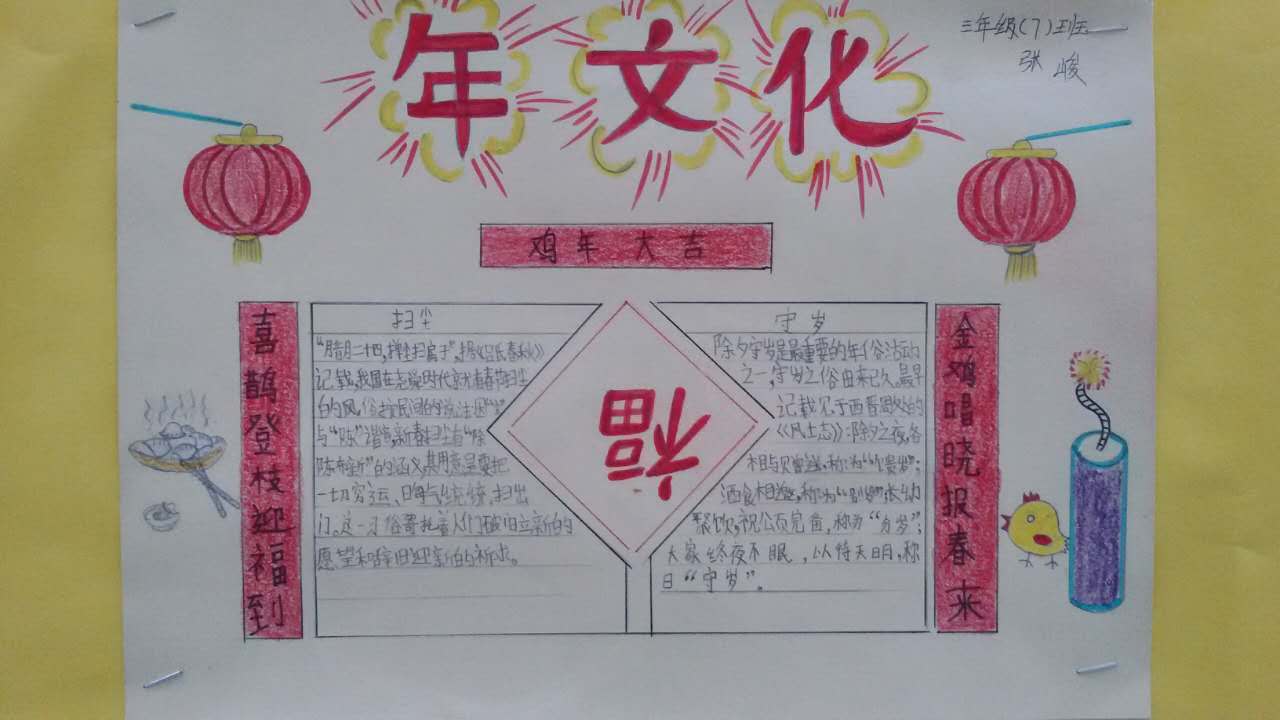 年文化
三年级(7)班
张峻
鸡年大吉
喜鹊登枝迎福到
扫尘
"腊月二十四,掸尘扫房子",据《吕氏春秋》
记载,我国在尧舜时代就有春节扫尘
的风俗按民间的说法:因"尘"
与"陈"谐音,新春扫尘有"除
陈布新"的涵义,其用意是要把
一切穷运、晦气统统扫出
门。这一习俗寄托着人们破旧立新的
愿望和辞旧迎新的祈求。
福
守岁
除夕守岁是最重要的年俗活动
之一,守岁之俗由来已久。最早
记载见于西晋周处的
《风土志》:除夕之夜,各
相与赠送,称为"馈岁";
酒食相邀,称为"别岁";长幼
聚饮,祝颂完备,称为"分岁";
大家终夜不眠,以待天明,称
曰"守岁"。
金鸡唱晓报春来